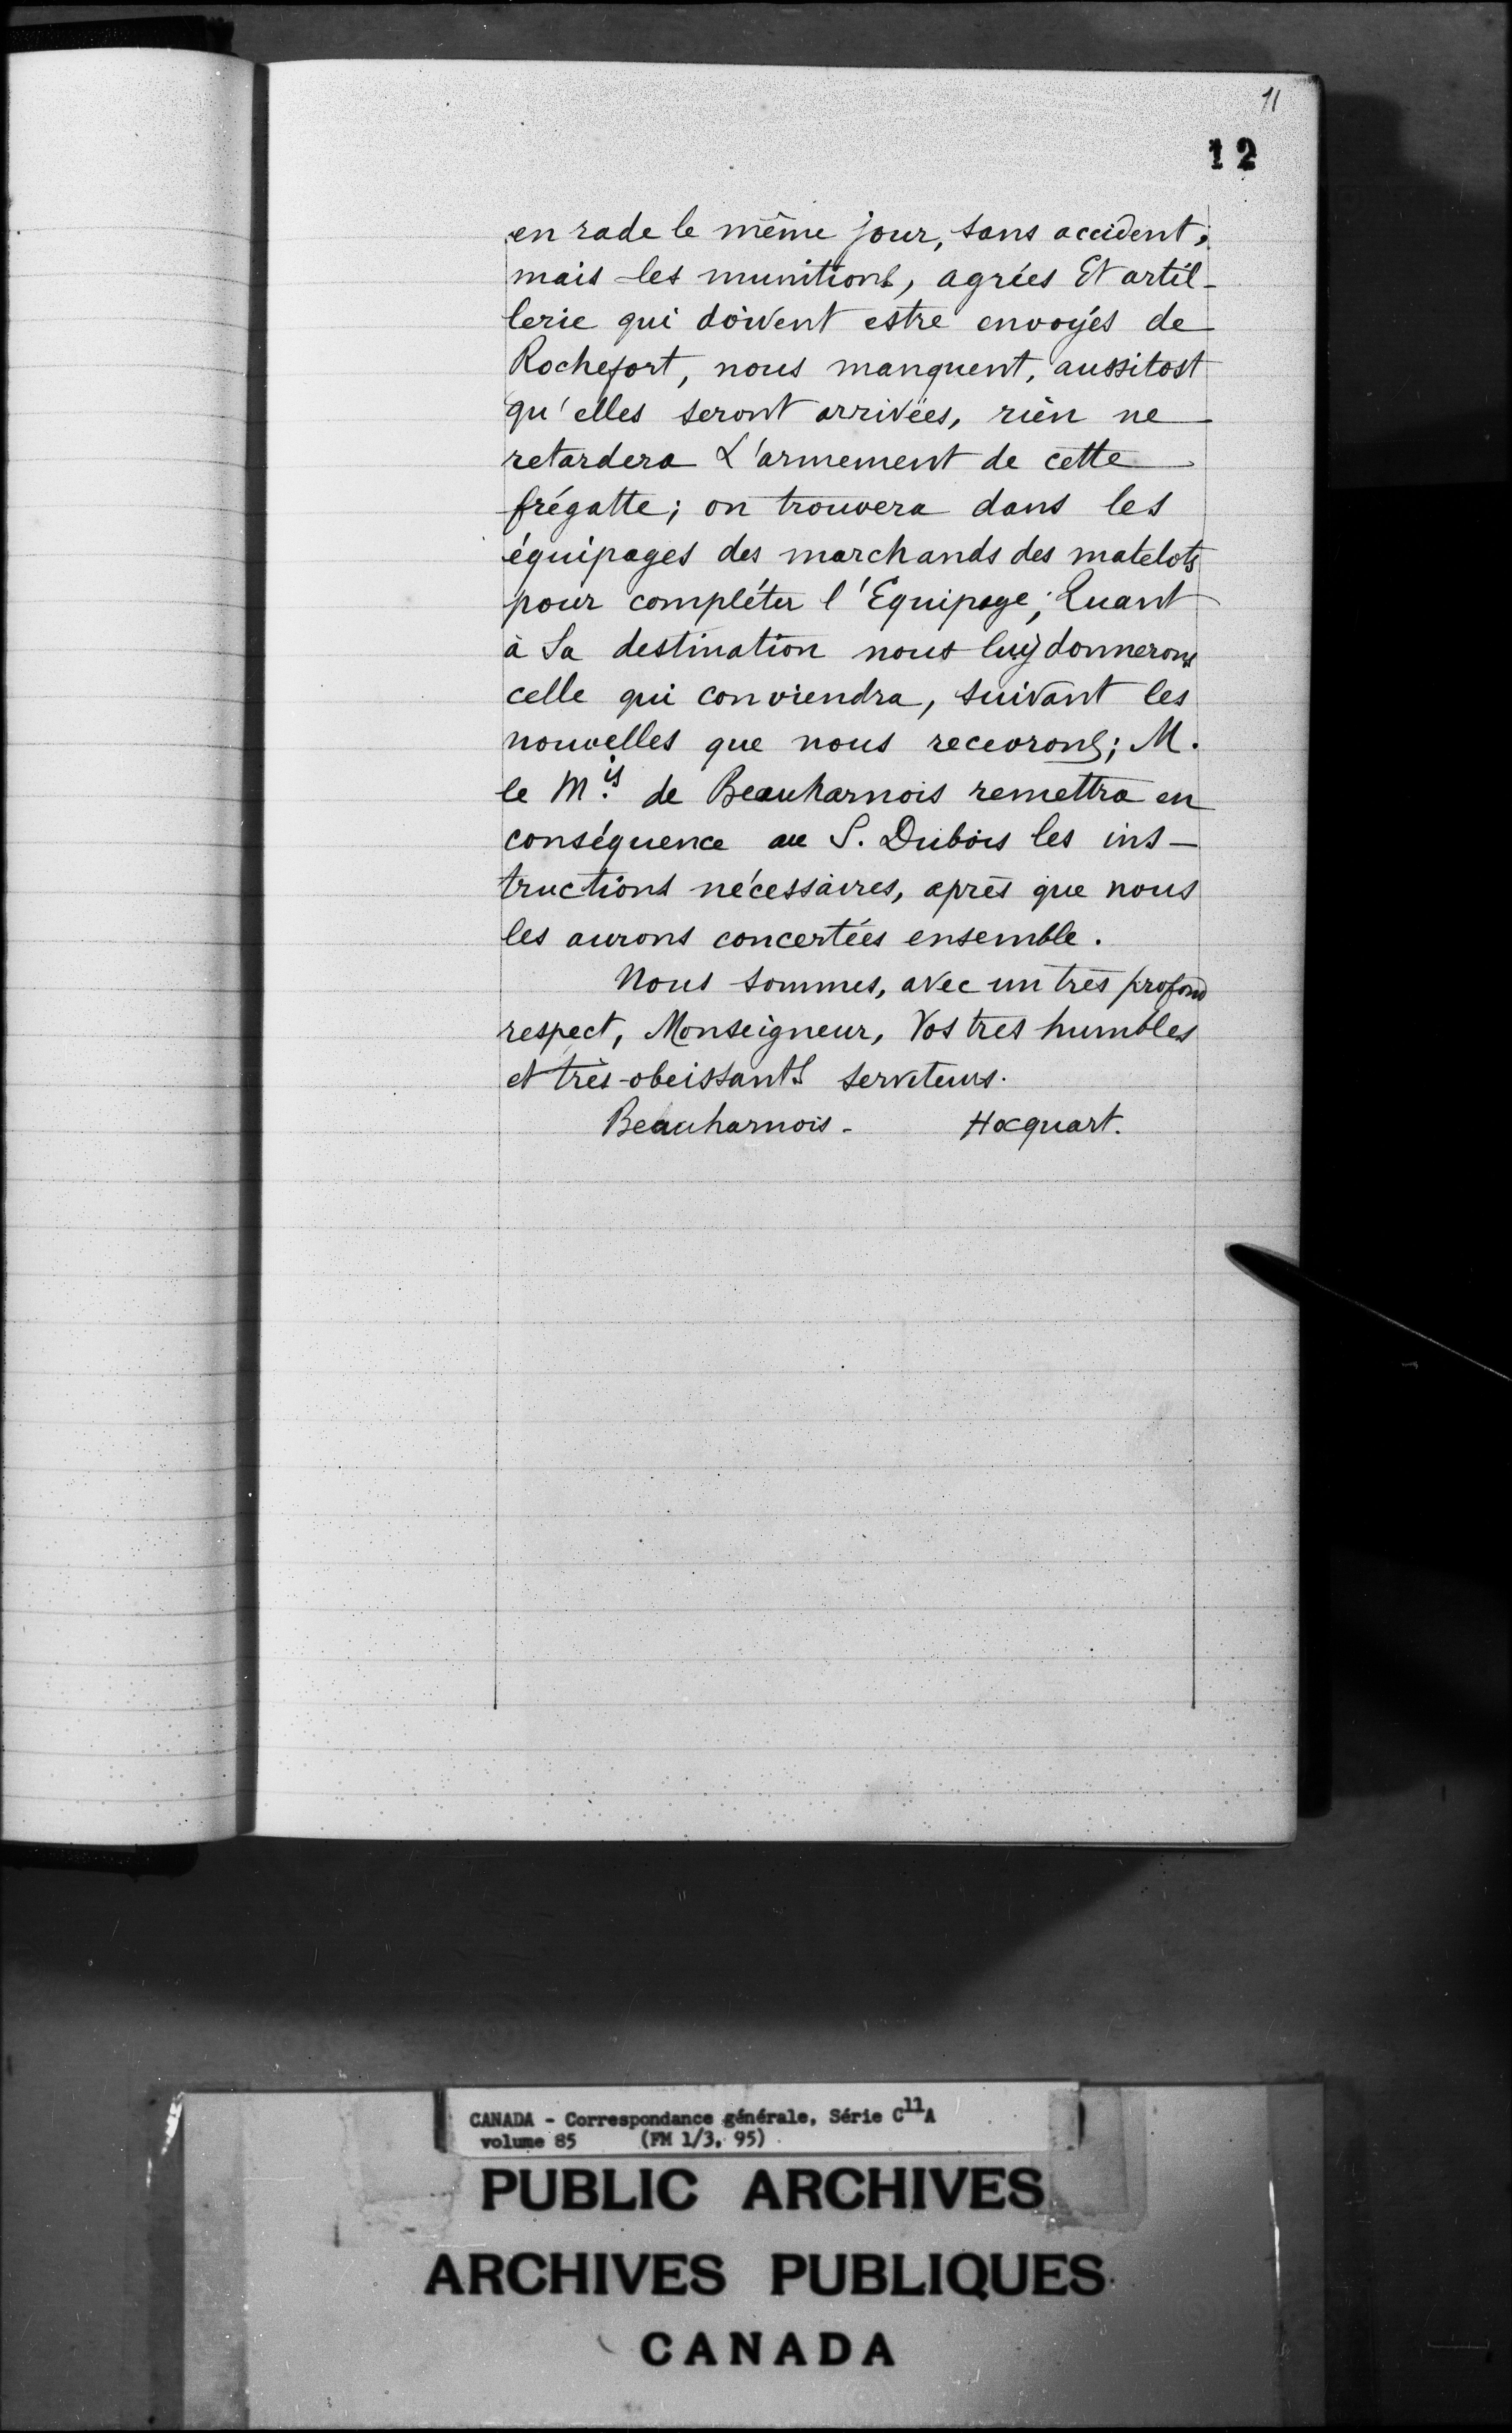 11
12
en rade le même jour, sans accident,
mais les munitions, agrées Et artil-
lerie qui doivent estre envoyés de
Rochefort, nous manquent, aussitost
qu'elles seront arrivées, rien ne
retardera L'armement de cette
frégatte; on trouvera dans les
équipages des marchands des matelots
pour compléter l'Equipage; Quant
à Sa destination nous luy donnerons
celle qui conviendra, suivant les
nouvelles que nous recevrons; M.
le M.is de Beauharnois remettra en
conséquence au S. Dubois les ins-
tructions nécessaires, après que nous
les aurons concertées ensemble.
Nous sommes, avec un très profond
respect, Monseigneur, Vos tres humbles
et très-obeissants serviteurs.
Beauharnois - Hocquart.
CANADA - Correspondance générale, Série C11A
volume 85 (FM 1/3, 95)
PUBLIC ARCHIVES
ARCHIVES PUBLIQUES
CANADA